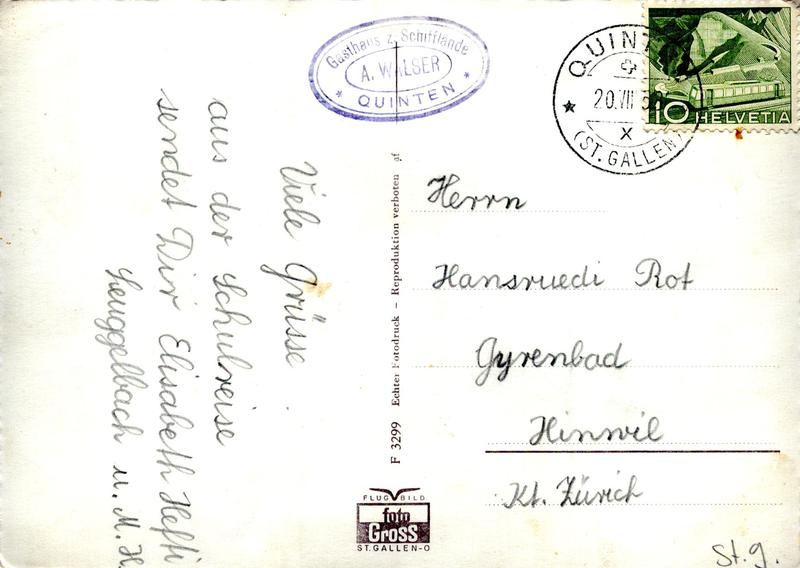 Gasthaus z. Schifflände
A. WALSER
* QUINTEN *
Viele Grüsse
aus der Schulreise
sendet Dir Elisabeth Hefti
Leuggelbach u. M. H.
F 3299 Echter Fotodruck – Reproduktion verboten gf
FLUG BILD
foto
Gross
ST. GALLEN-O
QUINT
20.VII
X
(ST. GALLEN)
10 HELVETIA
Herrn
Hansruedi Rot
Gyrenbad
Hinwil
Kt. Zürich
St. g.